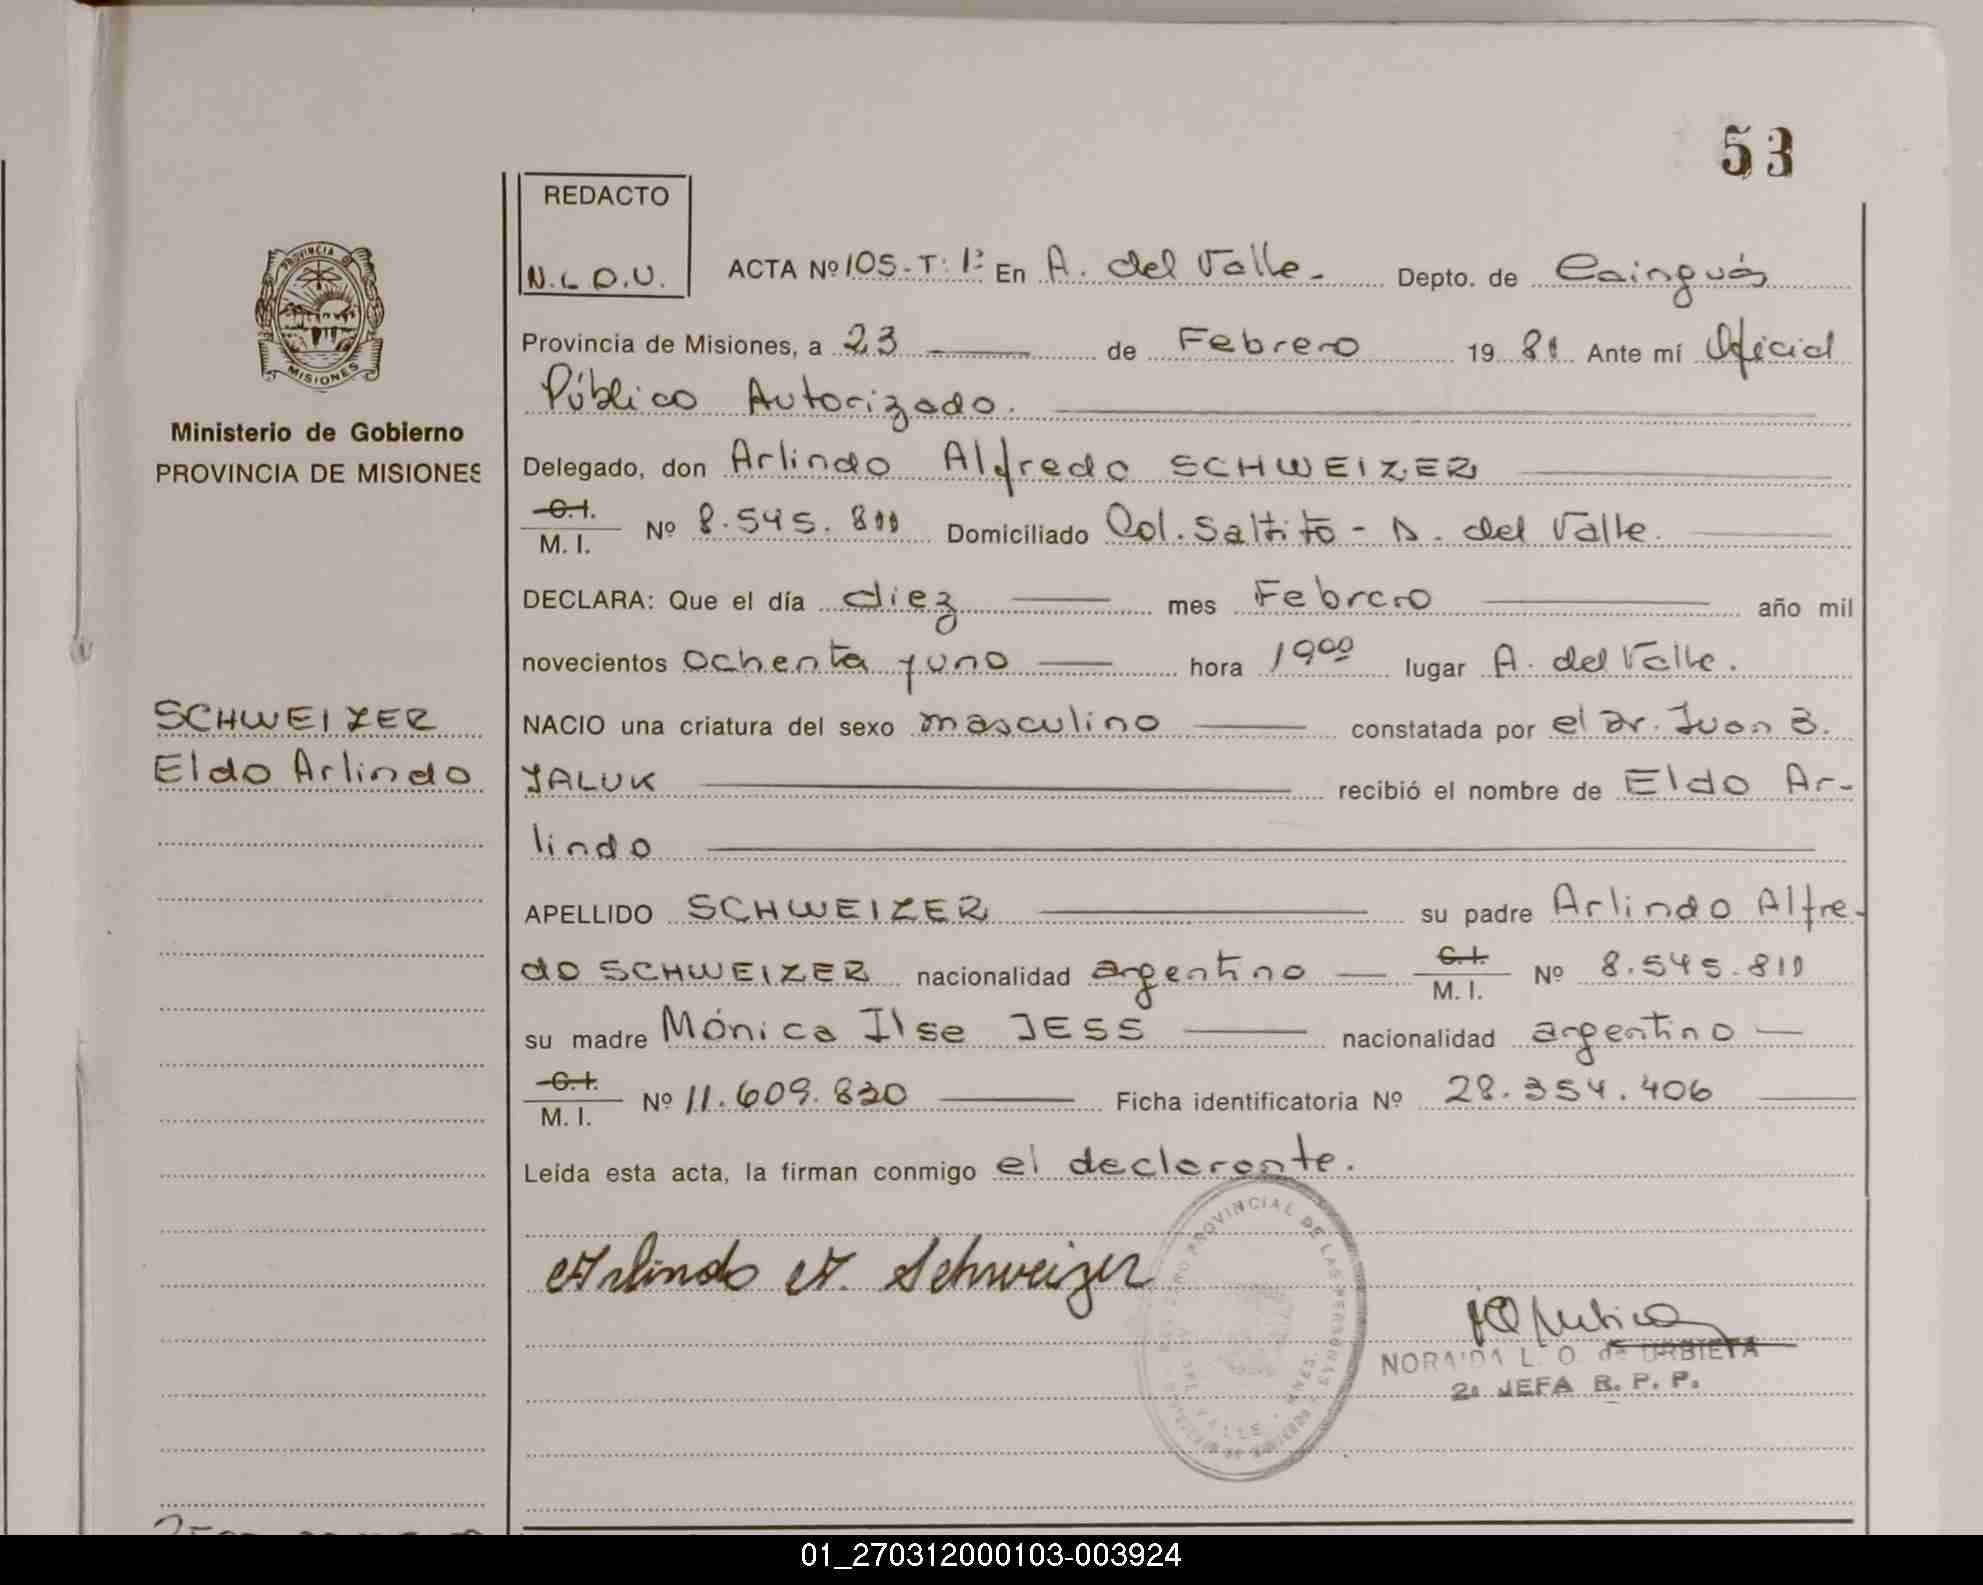 53
REDACTO
N.L.D.U.
ACTA Nº 105-T: 1º En A. del Valle. Depto. de Cainguás
PROVINCIA DE MISIONES
Provincia de Misiones, a 23 de Febrero 19 81 Ante mí Oficial
Público Autorizado.
Ministerio de Gobierno
PROVINCIA DE MISIONES
Delegado, don Arlindo Alfredo SCHWEIZER
C.I.
M. I. Nº 8.545.811 Domiciliado Col. Saltito - A. del Valle.
DECLARA: Que el día diez mes Febrero año mil
novecientos ochenta y uno hora 19⁰⁰ lugar A. del Valle.
SCHWEIZER
Eldo Arlindo
NACIO una criatura del sexo masculino constatada por el Dr. Juan B.
YALUK recibió el nombre de Eldo Ar-
lindo
APELLIDO SCHWEIZER su padre Arlindo Alfre-
do SCHWEIZER nacionalidad argentino C.I.
M. I. Nº 8.545.811
su madre Mónica Ilse JESS nacionalidad argentino
C.I.
M. I. Nº 11.609.830 Ficha identificatoria Nº 28.354.406
Leída esta acta, la firman conmigo el declarante.
Arlindo A. Schweizer
NORAIDA L. O. de URBIETA
2a JEFA R. P. P.
01_270312000103-003924